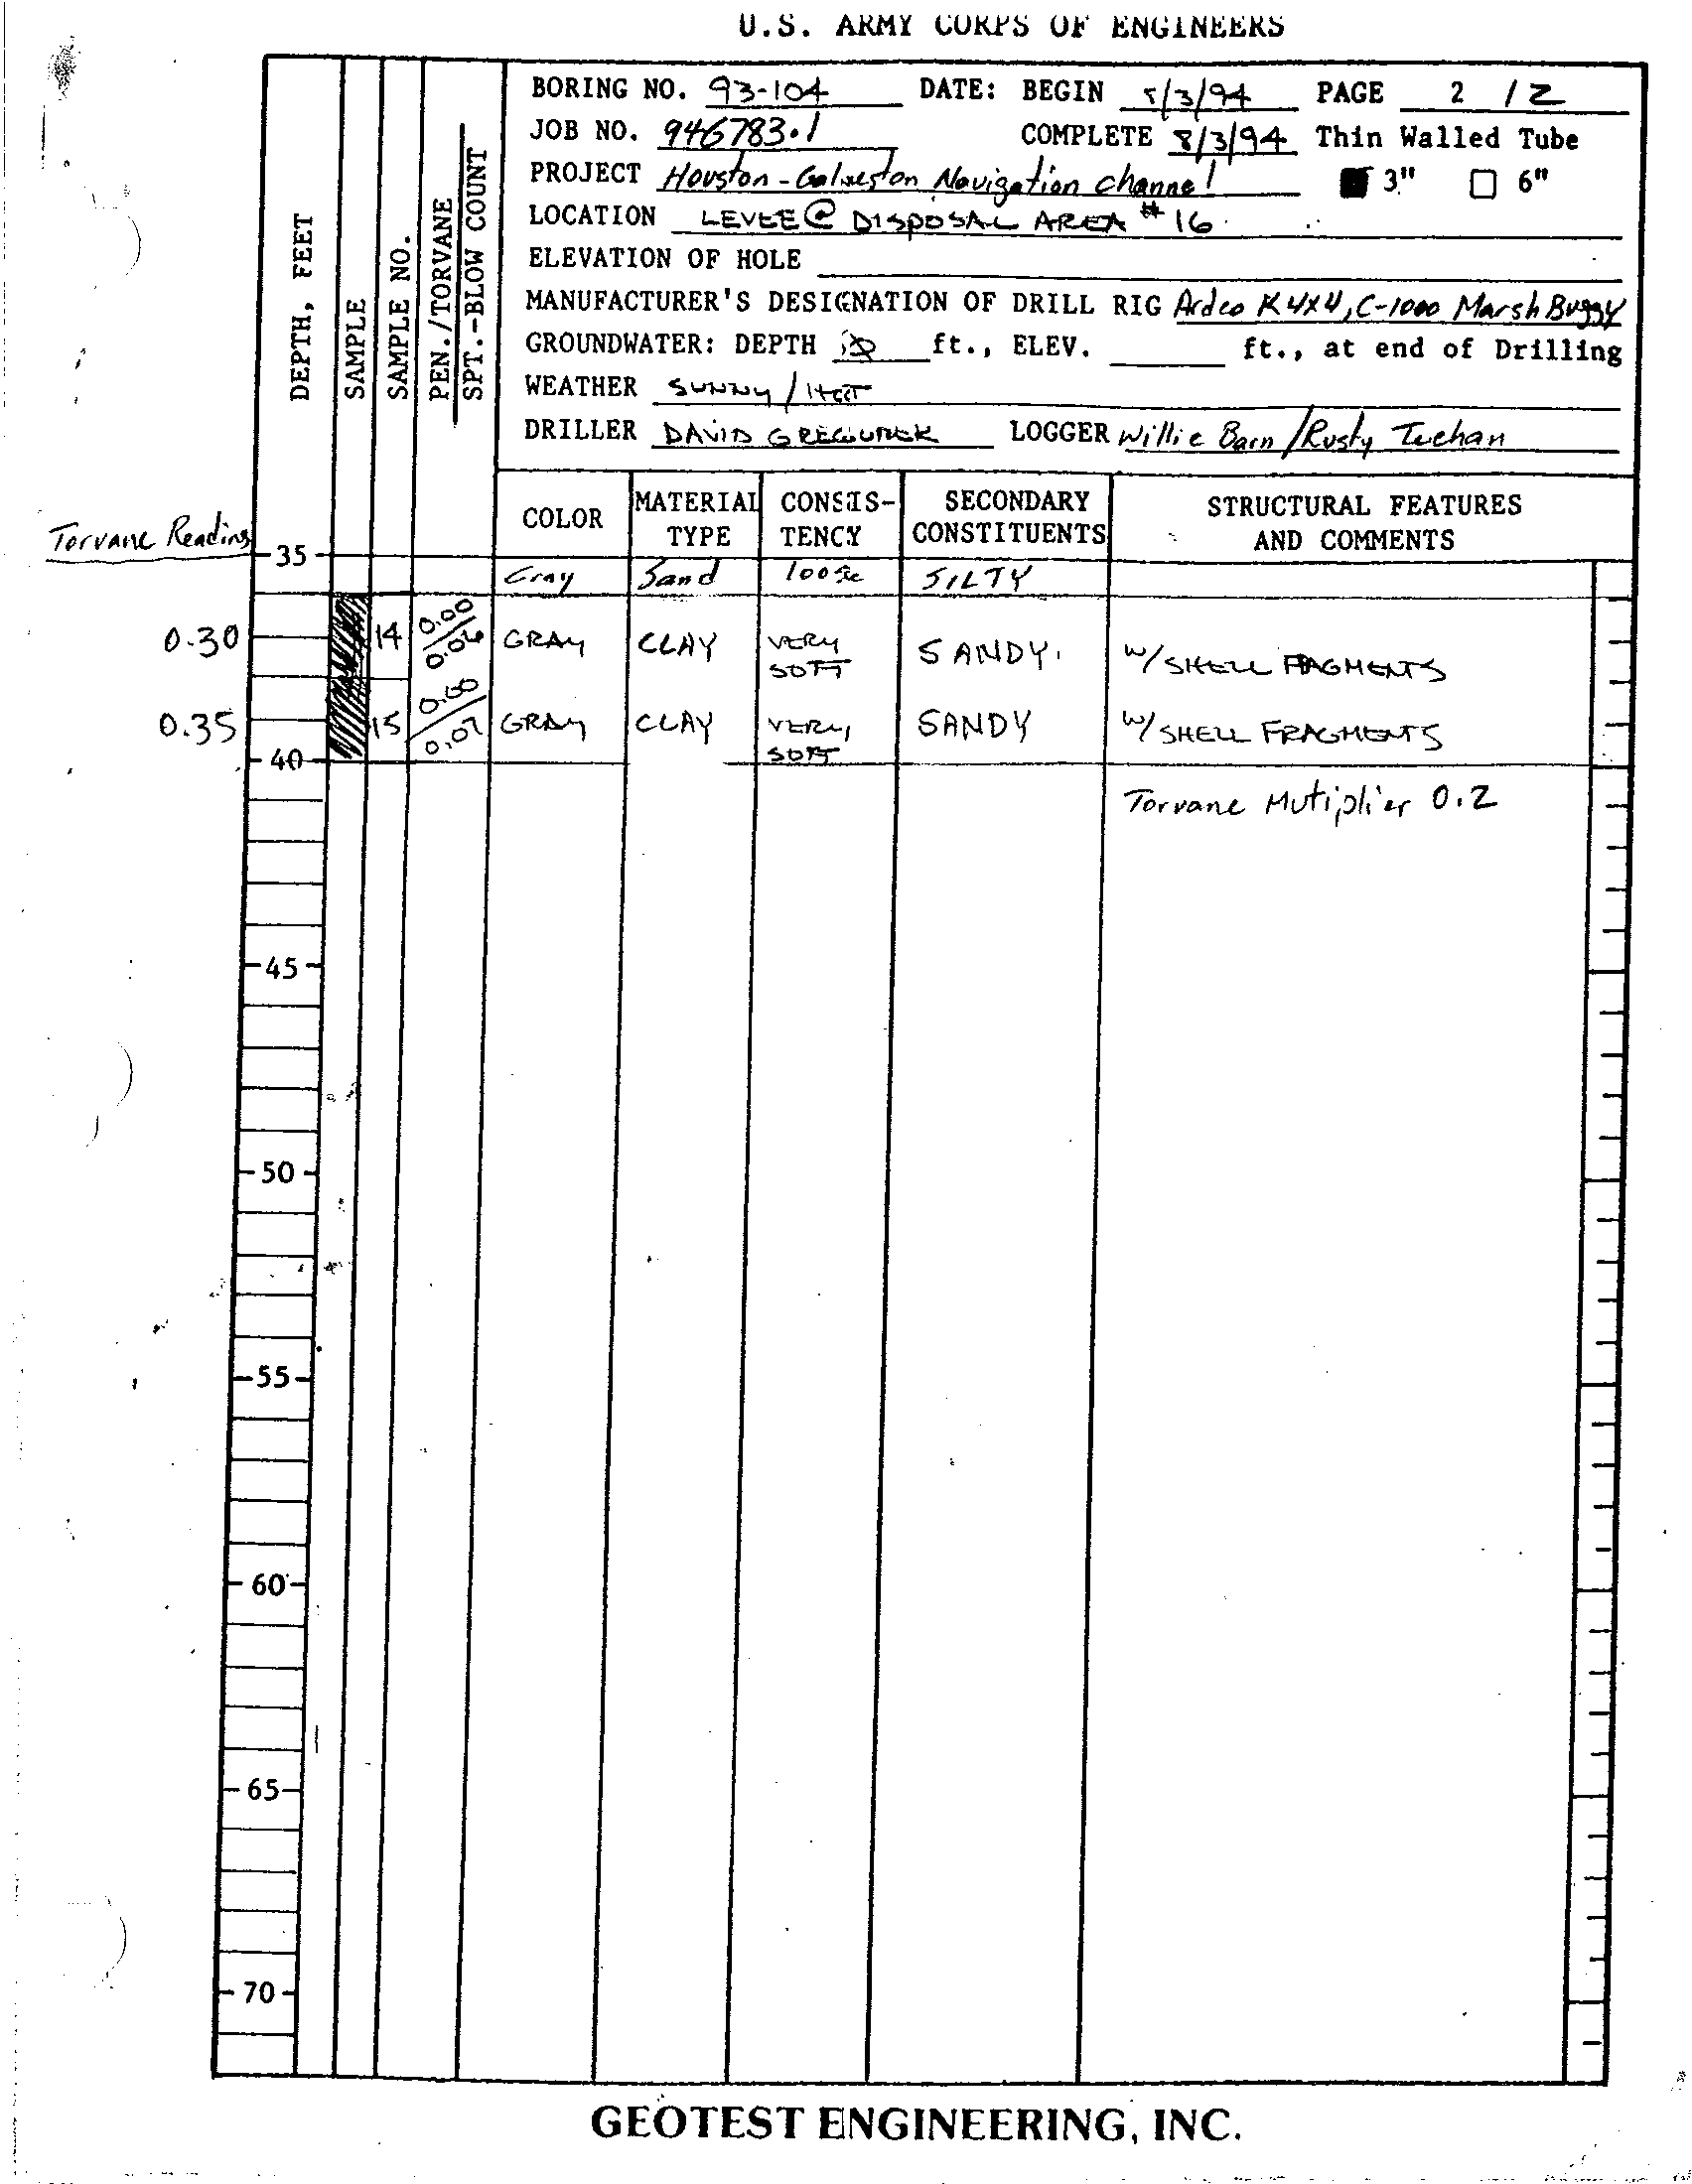 U.S. ARMY CORPS OF ENGINEERS
BORING NO. 93-104 DATE: BEGIN 8/3/94 PAGE 2 / 2
JOB NO. 946783.1 COMPLETE 8/3/94 Thin Walled Tube
PROJECT Houston-Galveston Navigation Channel 3" 6"
LOCATION LEVEE @ DISPOSAL AREA #16
ELEVATION OF HOLE
MANUFACTURER'S DESIGNATION OF DRILL RIG Ardco K 4x4, C-1000 Marsh Buggy
GROUNDWATER: DEPTH ft., ELEV. ft., at end of Drilling
WEATHER SUNNY / HOT
DRILLER DAVID LOGGER Willie Barn / Rusty
DEPTH, FEET
SAMPLE
SAMPLE NO.
PEN./TORVANE
SPT.-BLOW COUNT
COLOR MATERIAL TYPE CONSIS-TENCY SECONDARY CONSTITUENTS STRUCTURAL FEATURES AND COMMENTS
Torvane Reading
35
Gray Sand loose SILTY
0.30 14 0.00/0.06 GRAY CLAY VERY SOFT SANDY. W/ SHELL FRAGMENTS
0.35 15 0.00/0.07 GRAY CLAY VERY SOFT SANDY W/ SHELL FRAGMENTS
40
Torvane Mutiplier 0.2
45
50
55
60
65
70
GEOTEST ENGINEERING, INC.